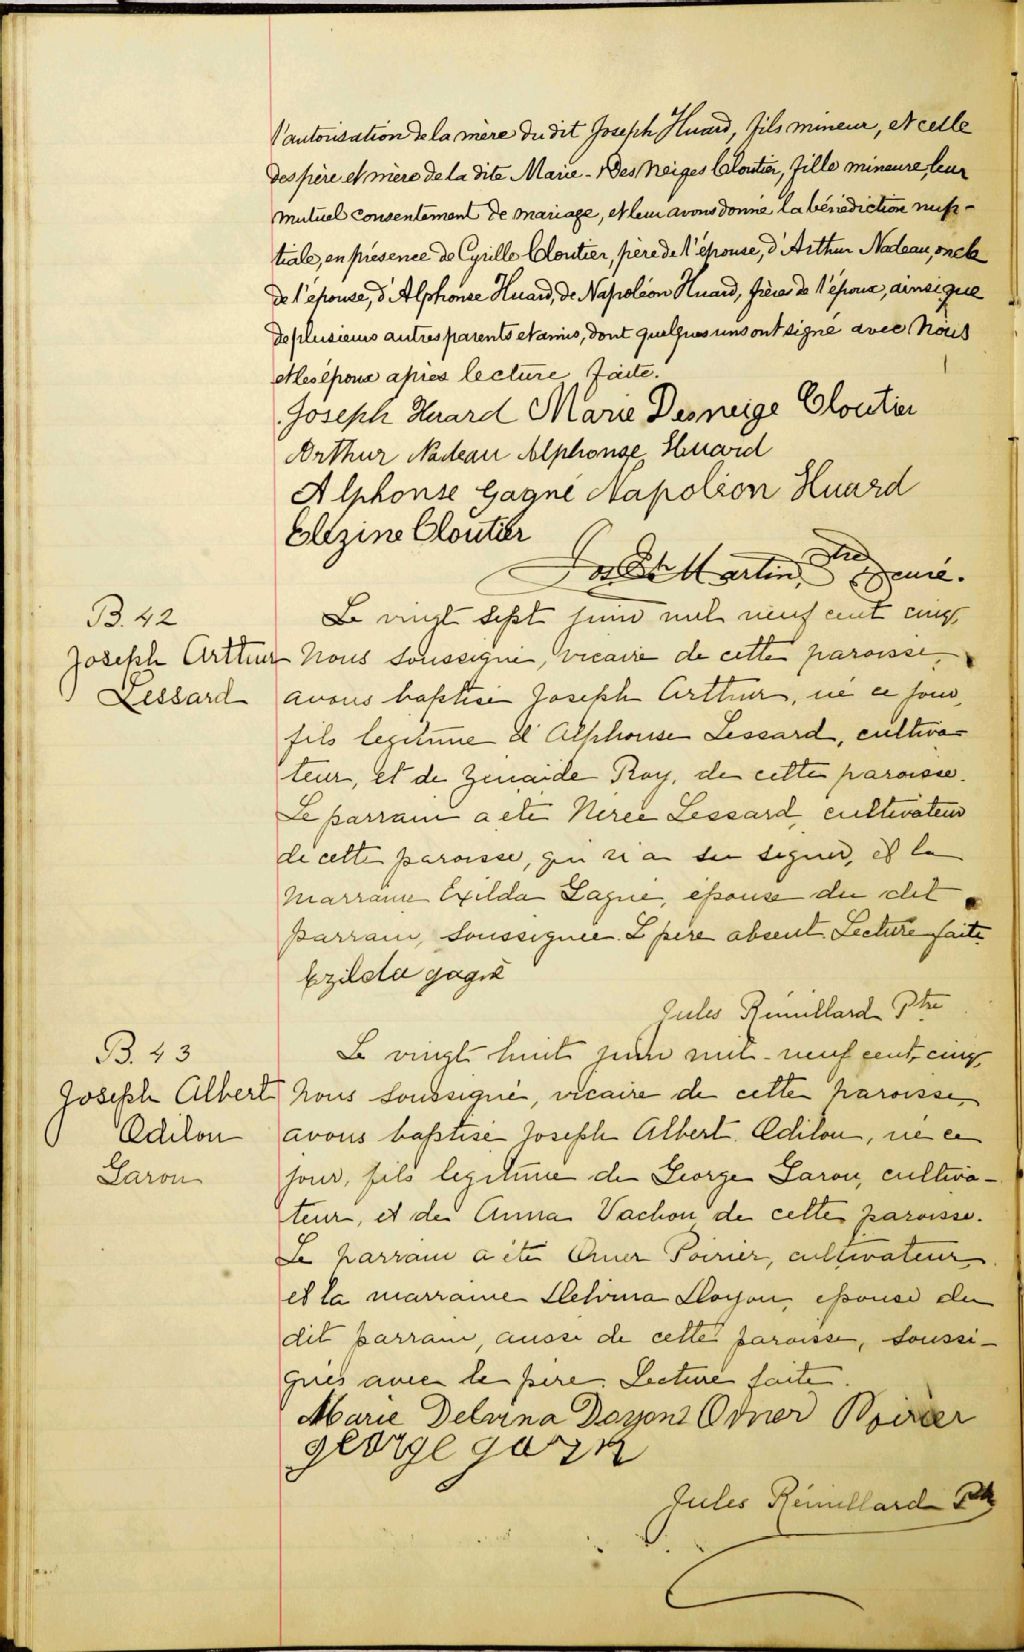 l'autorisation de la mère du dit Joseph Huard, fils mineur, et celle
des père et mère de la dite Marie-Des Neiges Cloutier, fille mineure, leur
mutuel consentement de mariage, et leur avons donné la bénédiction nup-
tiale, en présence de Cyrille Cloutier, père de l'épouse, d'Arthur Nadeau, oncle
de l'épouse, d'Alphonse Huard, de Napoléon Huard, frères de l'époux, ainsi que
de plusieurs autres parents et amis, dont quelques uns ont signé avec Nous
et les époux après lecture faite.
Joseph Huard Marie Desneige Cloutier
Arthur Nadeau Alphonse Huard
Alphonse Gagné Napoléon Huard
Elezine Cloutier
Jos Et Martin, Ptre curé.
B. 42
Joseph Arthur
Lessard
Le vingt sept juin mil neuf cent cinq,
Nous soussigné, vicaire de cette paroisse,
avons baptisé Joseph Arthur, né ce jour,
fils legitime d'Alphonse Lessard, cultiva-
teur, et de Zénaïde Roy, de cette paroisse.
Le parrain a été Nérée Lessard, cultivateur
de cette paroisse, qui n'a su signer, et la
marraine Exilda Gagné, épouse du dit
parrain, soussignée. L père absent. Lecture faite
Exzilda gagné
Jules Rémillard Ptre
B. 43
Joseph Albert
Odilon
Garon
Le vingt huit juin mil-neuf cent, cinq,
Nous soussigné, vicaire de cette paroisse,
avons baptisé Joseph Albert Odilon, né ce
jour, fils legitime de George Garon, cultiva-
teur, et de Anna Vachon de cette paroisse.
Le parrain a été Omer Poirier, cultivateur,
et la marraine Delvina Doyon, epouse du
dit parrain, aussi de cette paroisse, soussi-
gnés avec le père. Lecture faite.
Marie Delvina Doyon Omer Poirier
george garon
Jules Rémillard Ptr